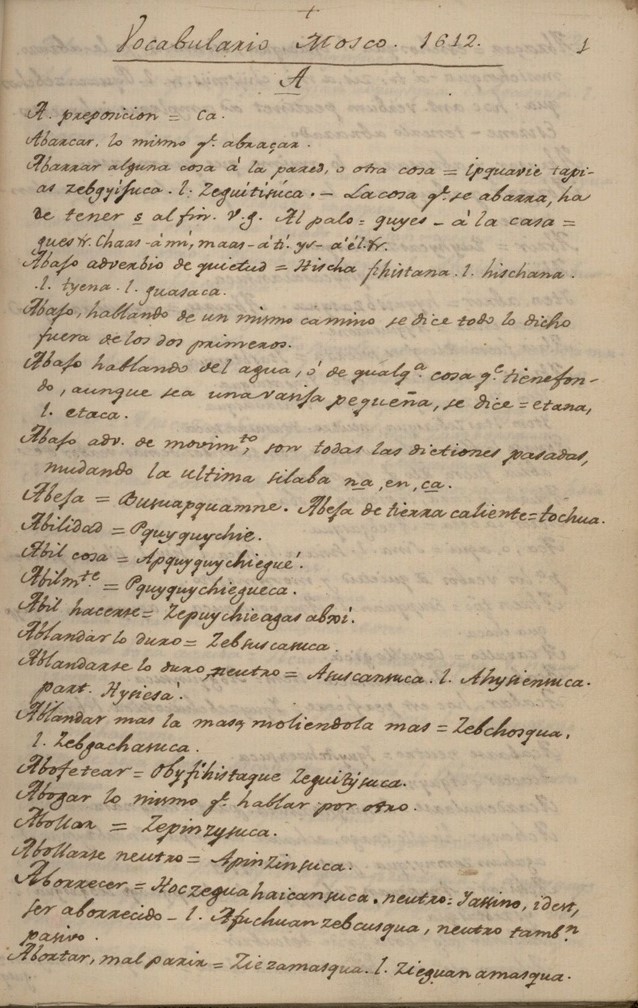 +
Vocabulario Mosco. 1612.
1
A
A. preposicion = ca.
Abarcar, lo mismo q.e abraçar.
Abarrar alguna cosa â la pared, o otra cosa = ipquavie tapi-
as zebgyisuca. l. Zeguitisúca. – La cosa q.e se abarra, ha
de tener s al fin. v.g. Al palo = guyes – â la casa =
gues &. Chaas – â mí, maas – â tí. ys – â él. &.
Abaso adverbio de quietud = Hischa fihistana. l. hischana.
.l. tyena. l. guasaca.
Abaso, hablando de un mismo camino se dice todo lo dicho
fuera de los dos primeros.
Abaso hablando del agua, ó de qualq.a cosa q.e tiene fon-
do, aunque sea una vasisa pequeña, se dice = etana,
l. etaca.
Abaso adv. de movim.to, son todas las dictiones pasadas,
mudando la ultima silaba na, en, ca.
Abesa = Busuapquamne. Abesa de tierra caliente = tochua.
Abilidad = Pquyquychie.
Abil cosa = Apquyquychiegué.
Abilm.te = Pquyquychiegueca.
Abil hacerse = Zepuychieagas abxi.
Ablandar lo duro = Zebsuscasuca.
Ablandarse lo duro, neutro = Asuscansuca. l. Ahysiensuca.
part. Hysiesâ.
Ablandar mas la masa, moliendola mas = Zebchosqua,
l. Zebgachasuca.
Abofetear = Obyfihistaque Zeguitysuca.
Abogar lo mismo q.e hablar por otro.
Abollar = Zepinzysuca.
Abollarse neutro = Apinzinsuca.
Aborrecer = Hoczeguahaicansuca. neutro: Iassino, idest,
ser aborrecido – l. Afuchuanzebcusqua, neutro tamb.n
pasivo.
Abortar, mal parir = Ziezamasqua. l. Zieguanamasqua.